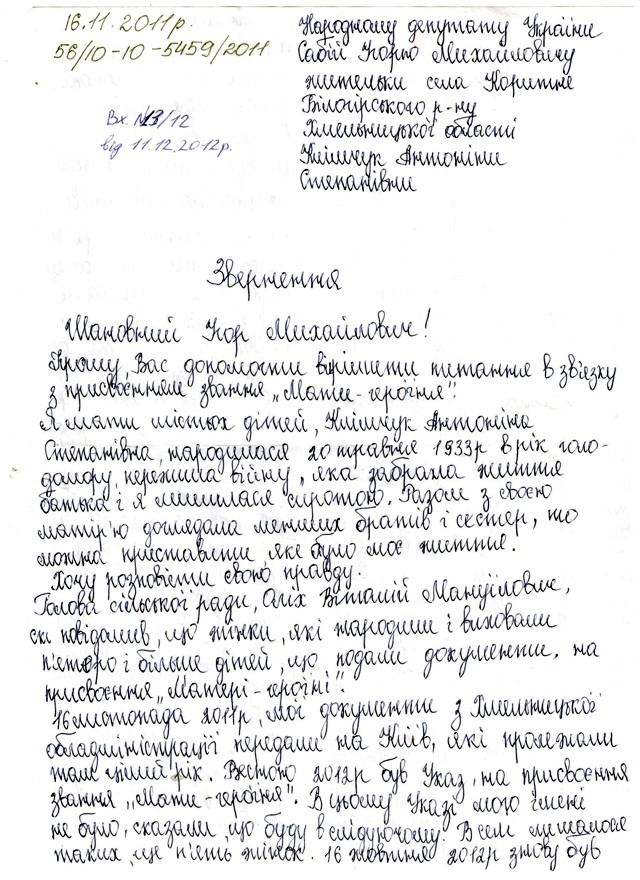 16.11.2011р.
56/10-10-5459/2011
Вх. №13/12
від 11.12.2012р.
Народному депутату України
Сабій Ігорю Михайловичу
жительки села Коритне
Білогірського р-ну
Хмельницької області
Клімчук Антоніни
Степанівни
Звернення
Шановний Ігор Михайлович!
Прошу, Вас допомогти вірішити питання в зв'язку
з присвоєнням звання „Мати-героїня".
Я мати шістьох дітей, Клімчук Антоніна
Степанівна, народилася 20 травня 1933р в рік голо-
домору, пережила війну, яка забрала життя
батька і я лишилася сиротою. Разом з своєю
матір'ю доглядала менших братів і сестер, то
можна приставити яке було моє життя.
Хочу розповісти свою правду.
Голова сільської ради, Оліх Віталій Мануїлович,
повідомив, що жінки, які народили і виховали
п'єтеро і більше дітей, що подали документи, на
присвоєння „Матері-героїні".
16 листопада 2011р, мої документи з Хмельницької
обладміністрації передали на Київ, які пролежали
там цілий рік. Весною 2012р був Указ, на присвоєння
звання „Мати-героїня". В цьому Указі мого імені
не було, сказали, що буду в слідуючому. Всем лишалося
таких, ще п'ять жінок. 16 жовтня 2012р знову був